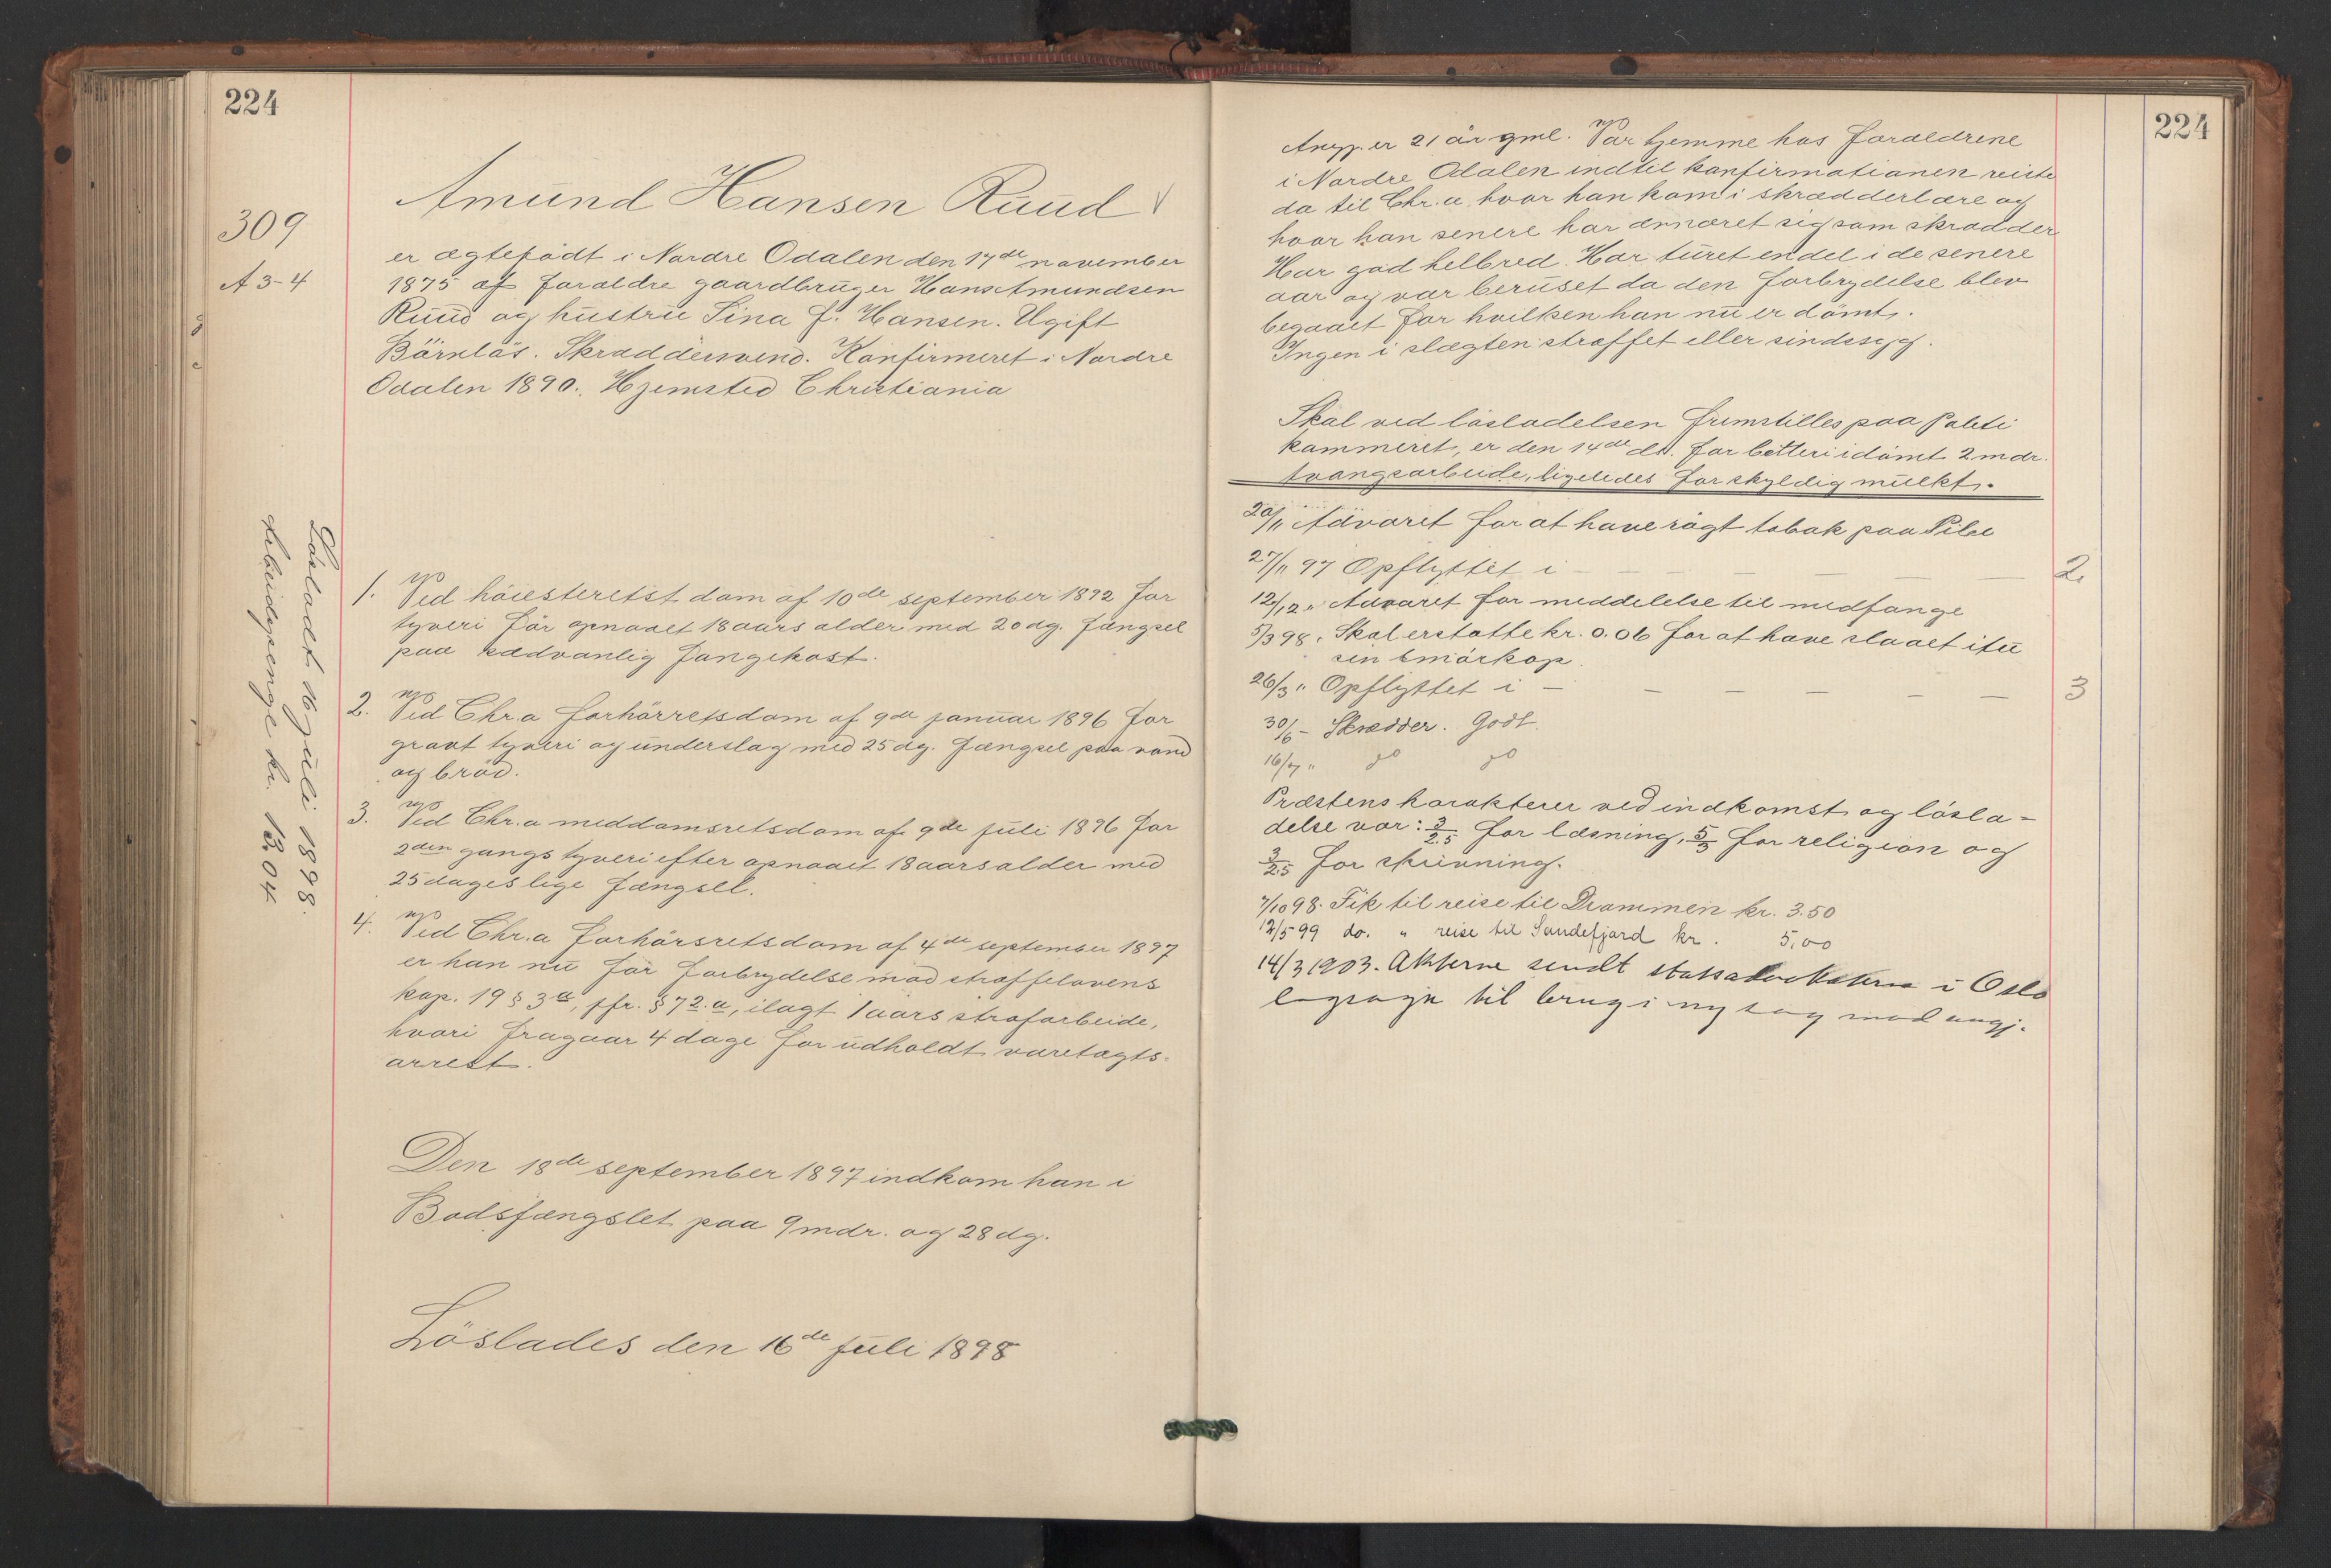 224
309
A 3-4
Amund Hansen Ruud
er ægtefödt i Nordre Odalen den 17de november
1875 af foraldre gaardbruger Hans Amundsen
Ruud og hustru Lina J. Hansen. Ugift
Börnlös. Skræddersvend. Konfirmeret i Nordre
Odalen 1890. Hjemsted Christiania
Lösladt 16 juli 1898.
Arbeidspenge kr. 13.04
1. Ved höiesteretst dom af 10de september 1892 for
tyveri för opnaaet 18 aars alder med 20 dg. fængsel
paa sædvanlig fangekost.
2. Ved Chr.a forhörretsdom af 9de januar 1896 for
gravt tyveri og underslag med 25 dg. fængsel paa vand
og bröd.
3. Ved Chr.a meddomsretsdom af 9de juli 1896 for
2den gangs tyveri efter opnaaet 18 aars alder med
25 dages lige fængsel.
4. Ved Chr.a forhörsretsdom af 4de september 1897
er han nu för forbrydelse mod straffelovens
kap. 19 § 3 a, jfr. § 72.a, ilagt 1 aars strafarbeide,
hvori fragaar 4 dage for udholdt varetægts-
arrest.
Den 18de september 1897 indkom han i
Bodsfængslet paa 9 mdr. og 28 dg.
Löslades den 16de juli 1898
224
Angj. er 21 år gml. Var hjemme hos foraldrene
i Nordre Odalen indtil konfirmationen reiste
da til Chr.a hvor han kom i skrædderlære og
hvor han senere har ernæret sig som skrædder
Har god helbred. Har turet endel i de senere
aar og var beruset da den forbrydelse blev
begaaet for hvilken han nu er dömt.
Ingen i slægten straffet eller sindssyg.
Skal ved lösladelsen fremstilles paa Politi
kammeret, er den 14de ds. for betleri idömt 2 mdr.
tvangsarbeide, ligeledes for skyldig mulkt.
20/11 Advaret for at have rögt tobak paa Pibe
27/11 97 Opflyttet i — — — — — — 2
12/12 " Advaret for meddelelse til medfange
5/3 98. Skal erstatte kr. 0.06 for at have slaaet itu
sin smörkop.
26/3 " Opflyttet i — — — — — — 3
30/6 - Skrædder. Godt.
16/7 " do do
Præstens karakterer ved indkomst og lösla-
delse var: 3/2.5 for læsning, 5/3 for religion og
3/2.5 for skrivning.
7/10 98. Fik til reise til Drammen kr. 3.50
12/5 99 do. " reise til Sandefjord kr. 5,00
14/3 1903. Akterne sendt statsadvokaterne i Oslo
lagsogn til brug i ny sag mod angj.